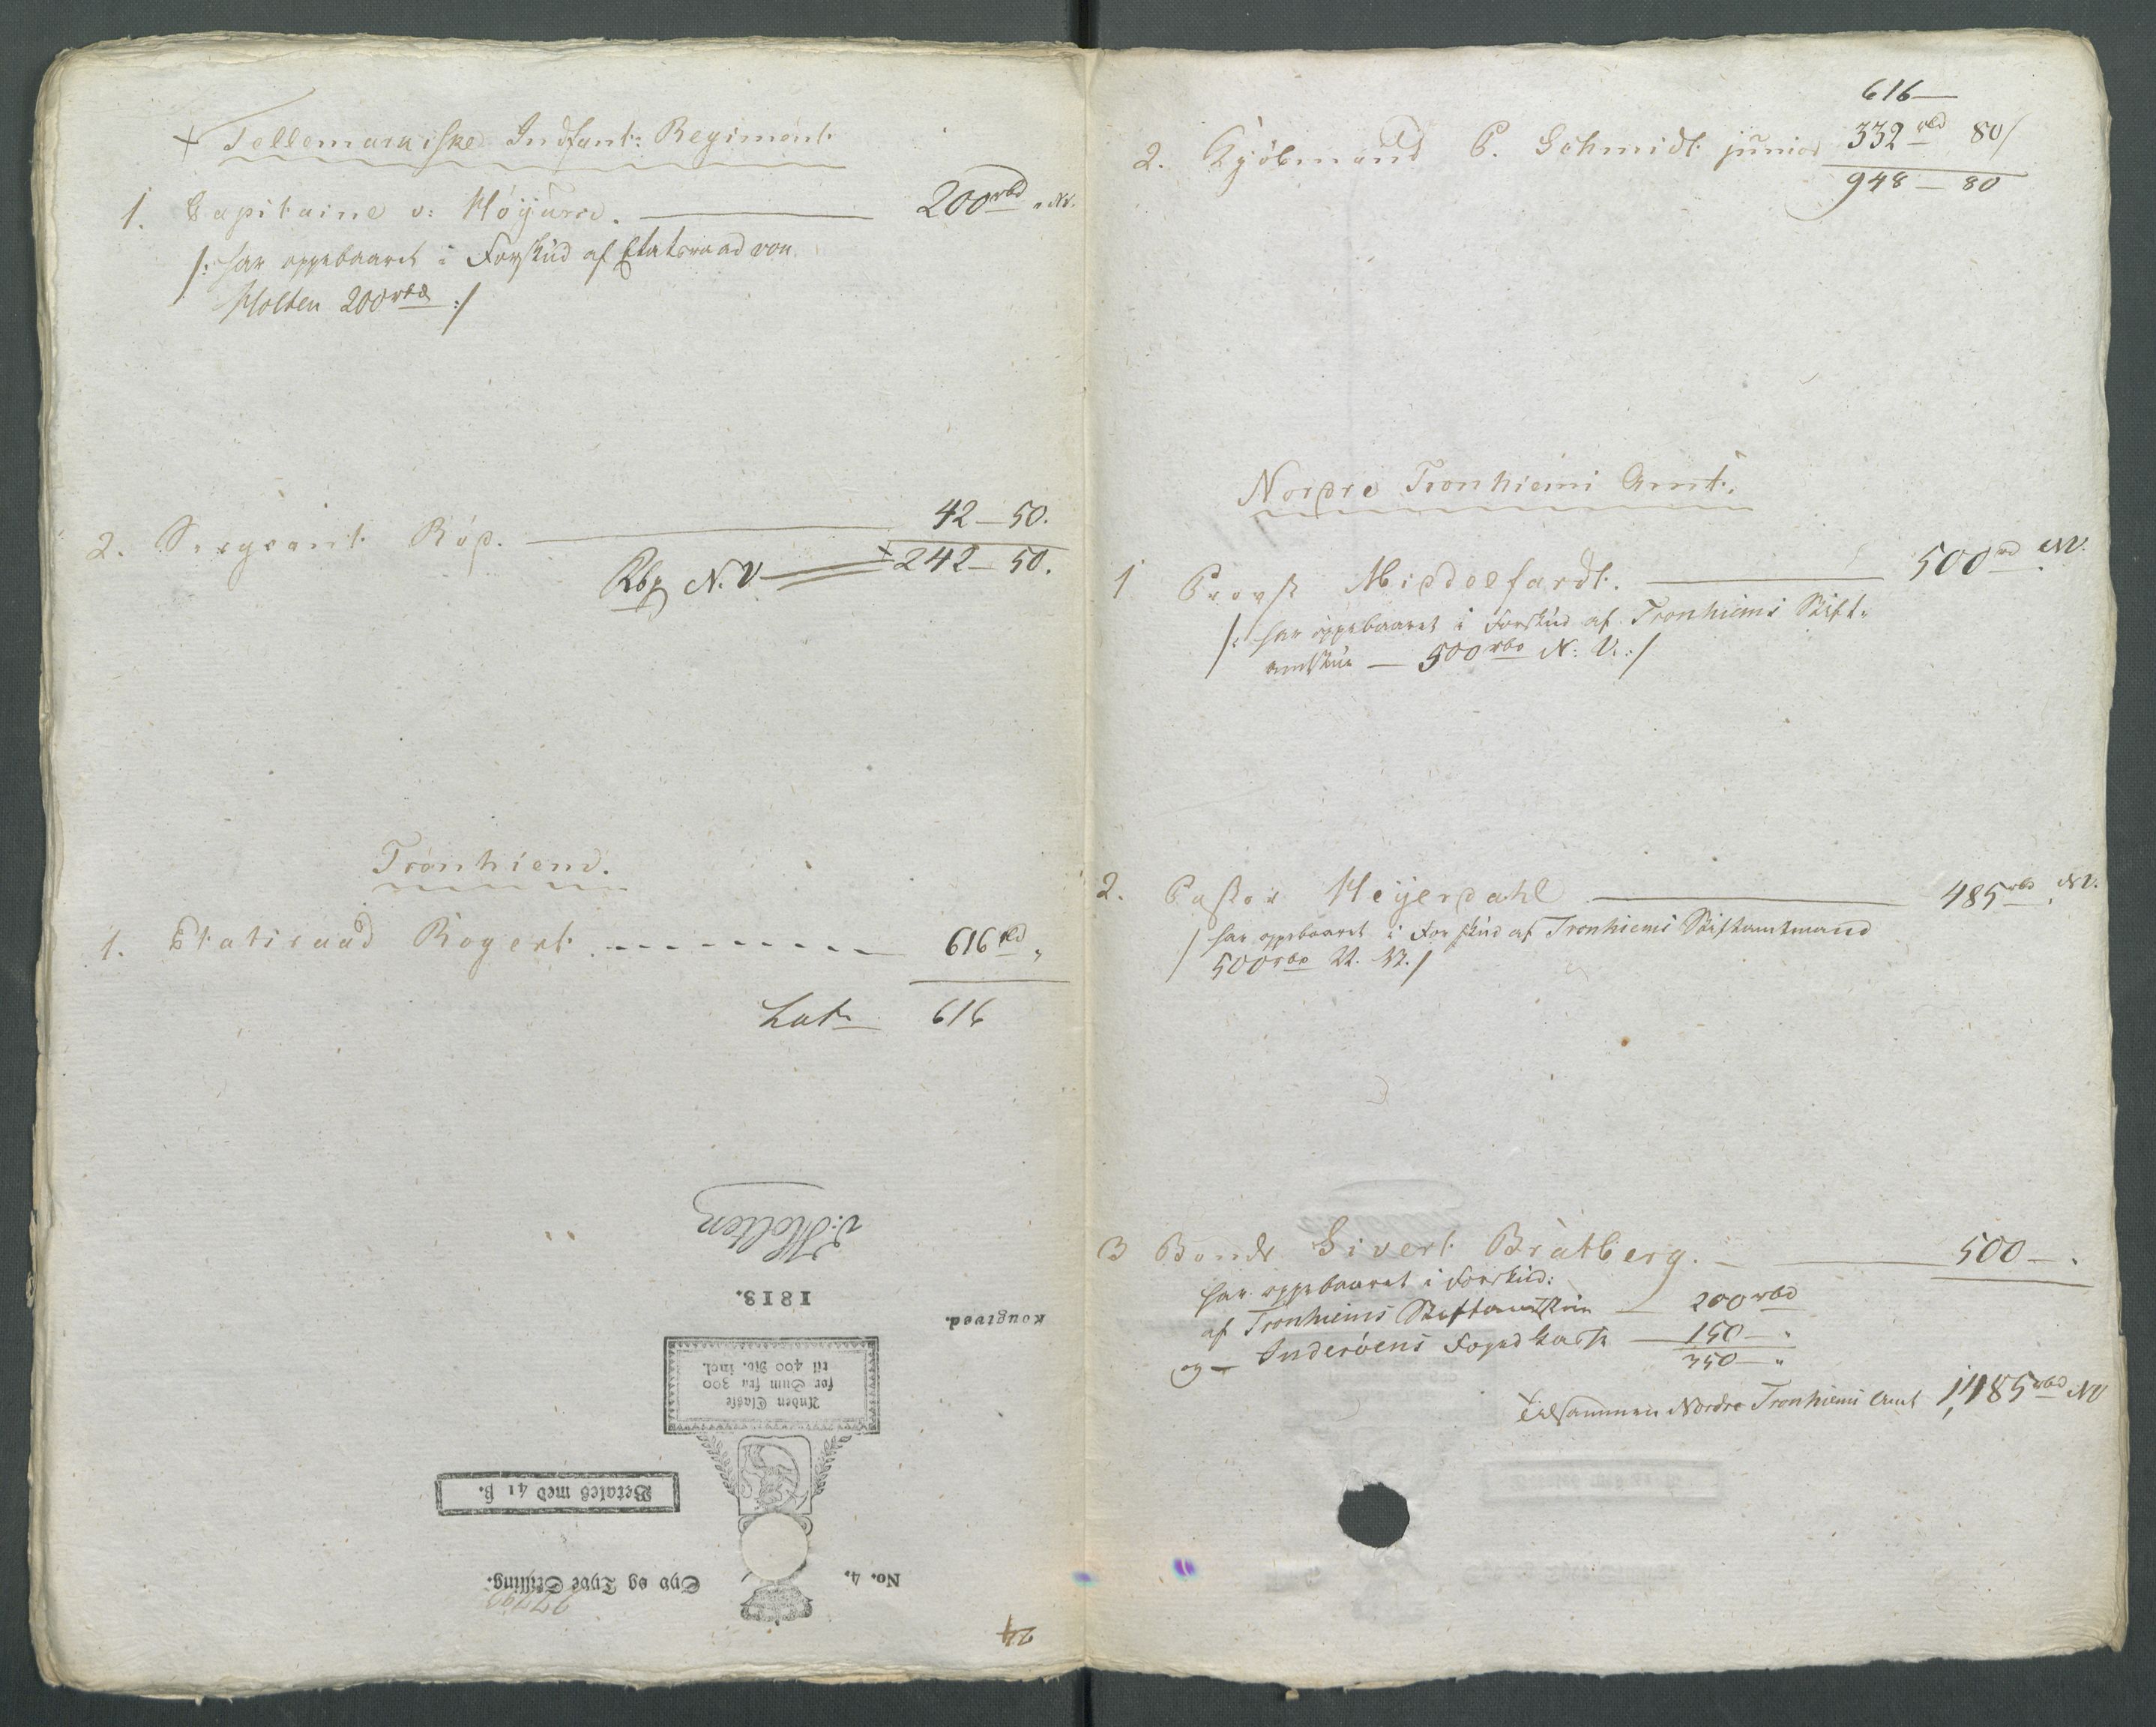 + Tellemarkiske Indfant: Regiment.
1. Capitaine v: Höÿum. 200 rbd " NV.
/: har oppebaaret i Forskud af Etatsraad von
Holten 200 rbd :/
2. Sergeant Röp. 42 – 50.
Rbd N.V. + 242 – 50.
Tronhiem.
1. Etatsraad Rogert. 616 rbd "
Lat. 616
v: Holten
1813.
Kougived.
Anden Classe
for Sum fra 300
til 400 Rd. incl.
Betales med 41 ß.
No. 4.
Syv og Tyve Skilling.
616 —
2. Kjöbmand P. Schmidt junior 332 rbd 80 /
948 – 80
Nordre Tronhiems Amt.
1 Provst Middelfardt. 500 rbd NV.
/: har oppebaaret i Forskud af Tronhiems Stift-
amtstue — 500 rbd N: V. :/
2. Pastor Heÿerdahl 485 rbd NV.
/ har oppebaaret i Forskud af Tronhiems Stiftamtmand
500 rbd N. V. /
3 Bonde Sivert Bratberg. — 500 — "
har oppebaaret i Forskud:
af Tronhiems Stiftamtstue — 200 rbd
og — Inderöens Foged Casse — 150 — "
350 — "
+ Tilsammen Nordre Tronhiems Amt 1,485 rbd NV